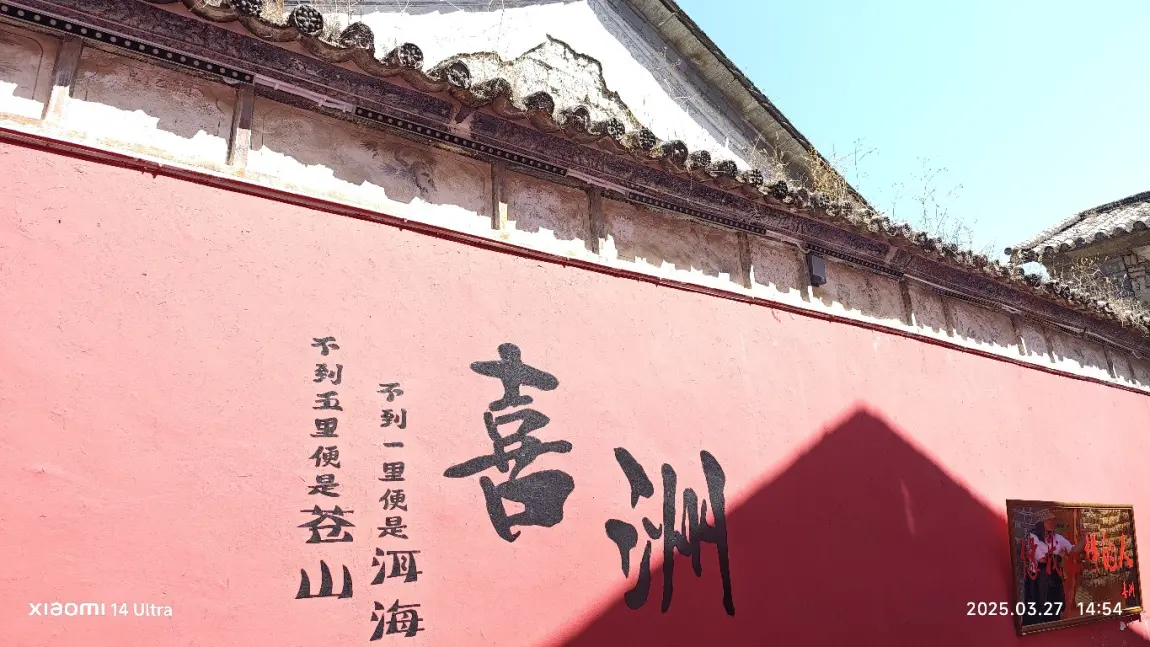 喜洲
不到五里便是苍山
不到一里便是洱海
xiaomi 14 Ultra
2025.03.27 14:54